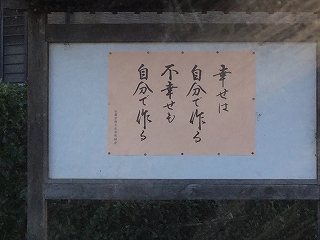 幸せは
自分で作る
不幸せも
自分で作る